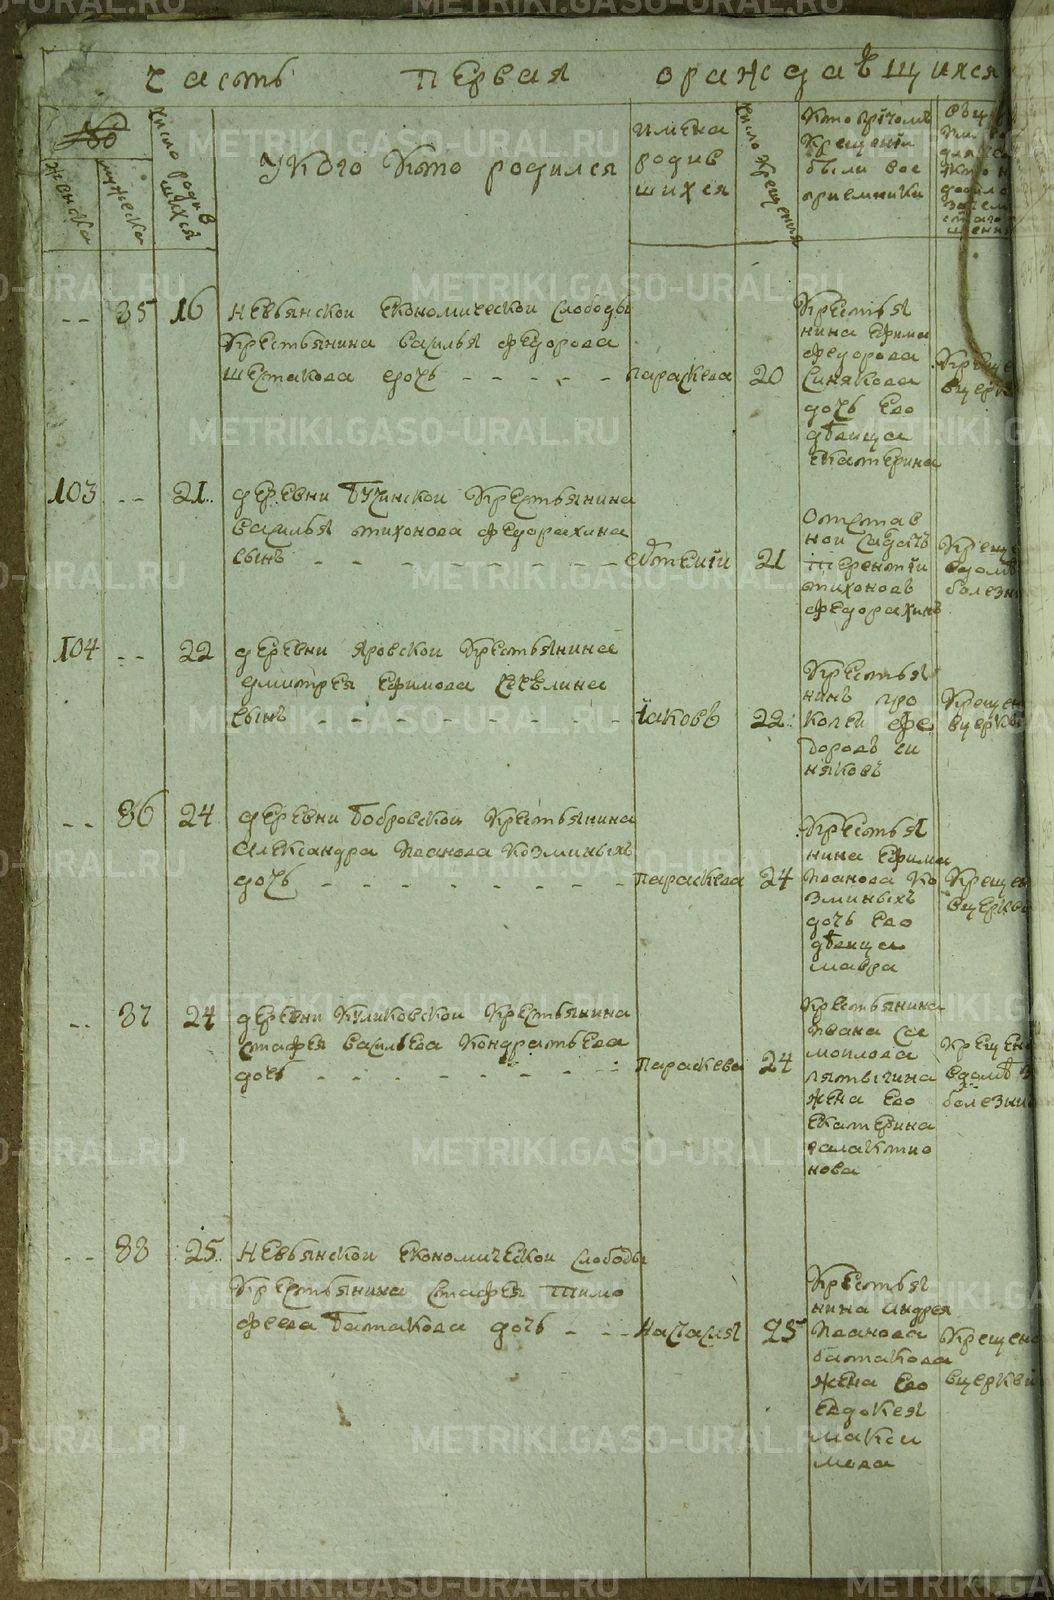 Часть первая ораждающихся
№
женска
мужеска
число родив
шихся
У Кого Кто родился
имена
родив
шихся
число крещения
Кто при томъ
крещенiи
были вос
приемники
-- 85 16 невьянской економической слободы
крестьянина василья федорова
шестакова дочь - - - - - параскева 20
крестья
нина ефима
федорова
синякова
дочь его
дѣвица
екатерина
103 -- 21 деревни Бучинской крестьянина
василья тихонова федорахина
сынъ - - - - - - - евтенiй 21
отстав
ной салдатъ
терентiй
тихоновъ
федорахинъ
104 -- 22 деревни яровской крестьянина
дмитрея ефимова
сынъ - - - - - - - iаковъ 22
крестья
нинъ про
копей фе
доровъ си
няковъ
-- 86 24 деревни Бобровской крестьянина
александра иванова козминыхъ
дочь - - - - - - - параскева 24
крестья
нина ефима
иванова ко
зминыхъ
дочь его
дѣвица
мавра
-- 87 24 деревни куликовской крестьянина
стафея васильева кондратьева
дочь - - - - - - - параскева 24
крестьянина
ивана са
моилова
латыгина
жена его
екатерина
галактио
нова
-- 88 25 невьянской економической слободы
крестьянина стафея тимо
феева батакова дочь - - - настасия 25
крестья
нина андрея
иванова
батакова
жена его
евдокея
макси
мова
METRIKI.GASO-URAL.RU